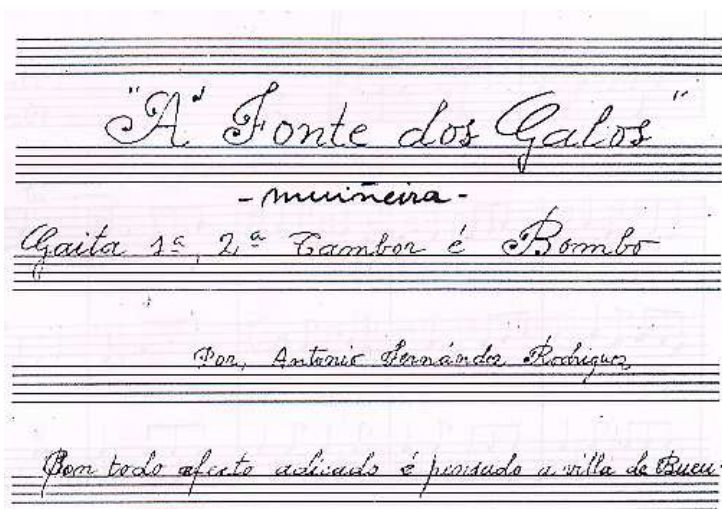 "A' Fonte dos Galos"
- muiñeira -
Gaita 1ª, 2,ª Tambor é Bombo
Por, Antonio Fernández Rodriguez
Con todo afecto adicado é pensado a villa de Bueu.